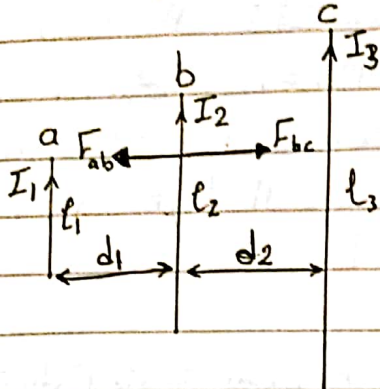 c
I3
b
I2
a
Fab
Fbc
I1
l1
l2
l3
d1
d2